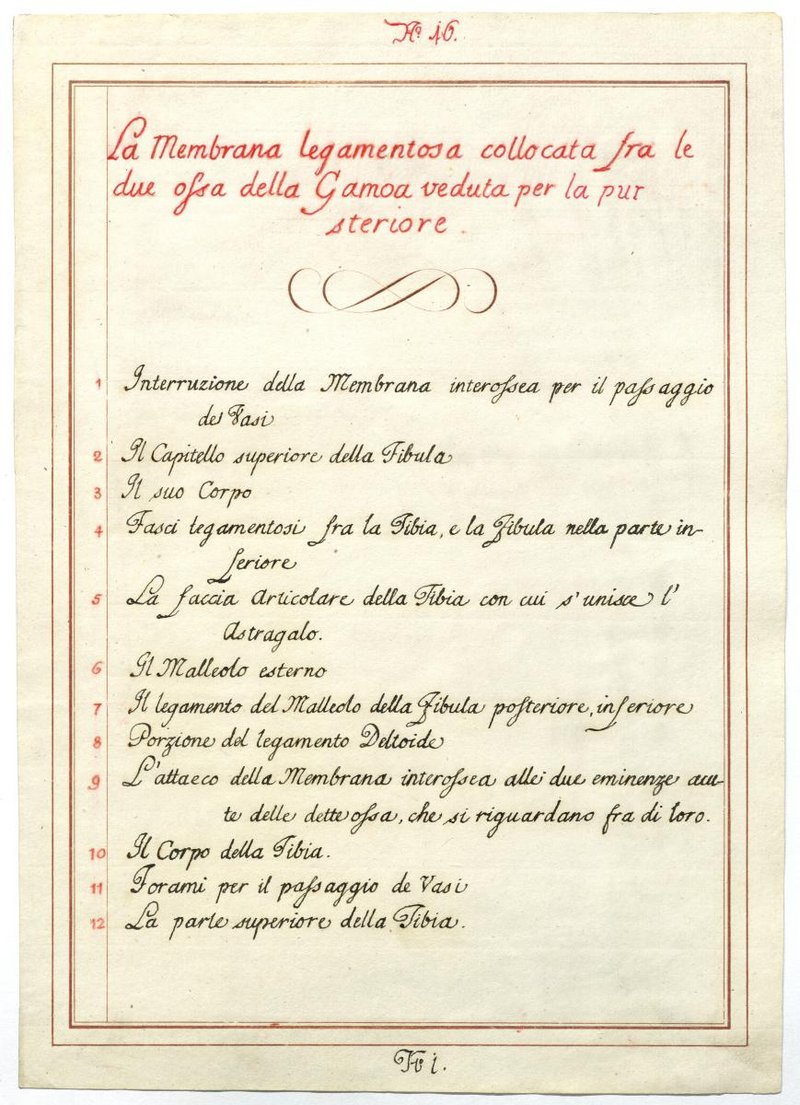 Nº 16.
La Membrana legamentosa collocata fra le
due ossa della Gamoa veduta per la pur
steriore.
1 Interruzione della Membrana interossea per il passaggio
de' Vasi
2 Il Capitello superiore della Fibula
3 Il suo Corpo
4 Fasci legamentosi fra la Tibia, e la Fibula nella parte in-
feriore
5 La faccia Articolare della Tibia con cui s'unisce l'
Astragalo.
6 Il Malleolo esterno
7 Il legamento del Malleolo della Fibula posteriore, inferiore
8 Porzione del legamento Deltoide
9 L'attaeco della Membrana interossea alle due eminenze acu-
te delle dette ossa, che si riguardano fra di loro.
10 Il Corpo della Tibia.
11 Forami per il passaggio de Vasi
12 La parte superiore della Tibia.